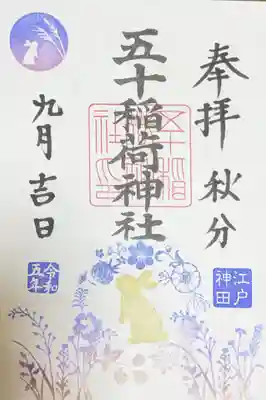 奉拝 秋分
江戸
神田
五十稲荷神社
九月吉日
令和
五年